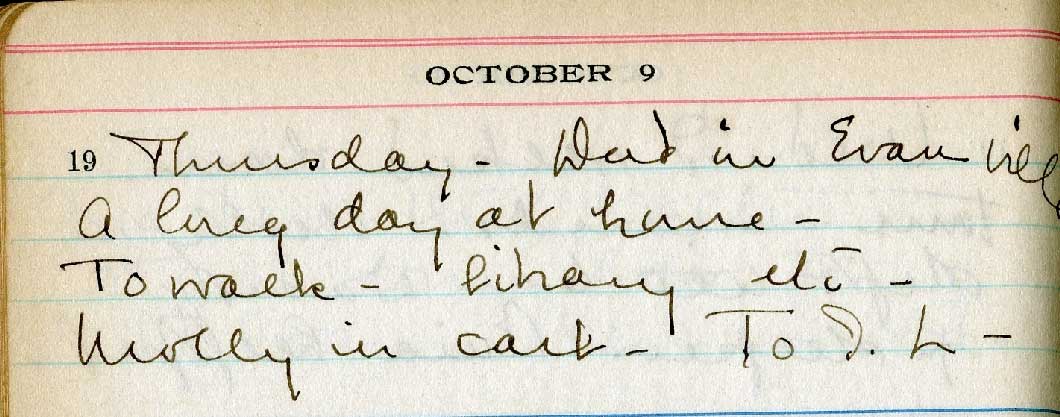 OCTOBER 9
19 Thursday - Dad in Evansville
A long day at home -
To walk - library etc -
Molly in cart - To D. L -